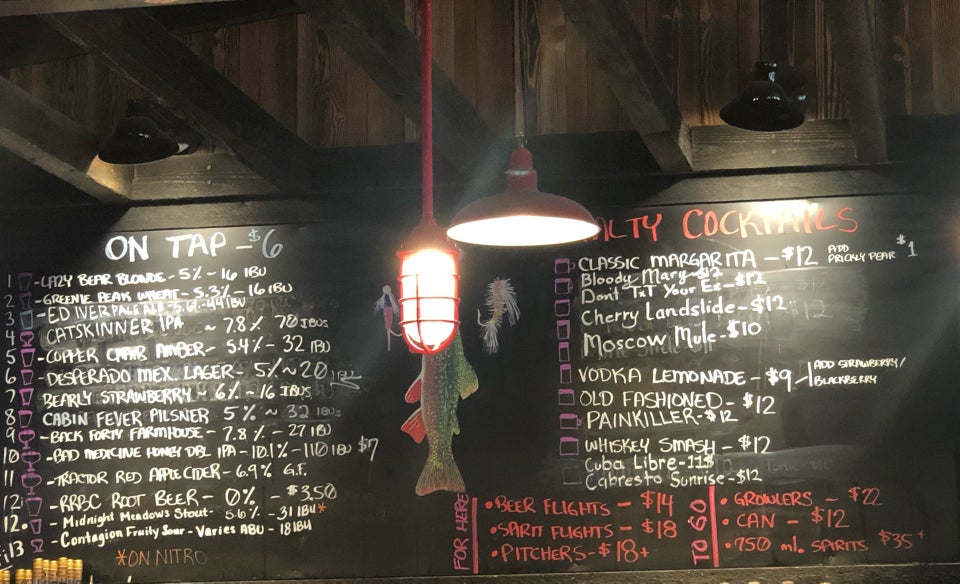 ON TAP - $6
1 - LAZY BEAR BLONDE - 5% - 16 IBU
2 - GREENIE PEAK WHEAT - 5.3% - 16 IBU
3 - ED IVER PALE ALE - 5.6% - 44 IBU
4 CATSKINNER IPA ~ 7.8% 70 IBUS
5 - COPPER CHAIR AMBER - 5.4% - 32 IBU
6 - DESPERADO MEX. LAGER - 5% ~ 20 IBU
7 BEARLY STRAWBERRY ~ 6% ~ 16 IBUS
8 CABIN FEVER PILSNER 5% ~ 32 IBUS
9 - BACK FORTY FARMHOUSE - 7.8% - 27 IBU
10 - BAD MEDICINE HONEY DBL IPA - 10.1% - 110 IBU $7
11 - TRACTOR RED APPLE CIDER - 6.9% G.F.
12 - RRBC ROOT BEER - 0% - $3.50
12. - Midnight Meadows Stout - 5.6% - 31 IBU*
13 - Contagion Fruity Sour - Varies ABU - 18 IBU
*ON NITRO
ALTY COCKTAILS
CLASSIC MARGARITA - $12 ADD PRICKLY PEAR $1
Bloody Mary - $12
Don't TxT Your Ex - $12
Cherry Landslide - $12
Moscow Mule - $10
VODKA LEMONADE - $9 - ADD STRAWBERRY/
BLACKBERRY
OLD FASHIONED - $12
PAINKILLER - $12
WHISKEY SMASH - $12
Cuba Libre - 11$
Cabresto Sunrise - $12
FOR HERE
• BEER FLIGHTS - $14
• SPIRIT FLIGHTS - $18
• PITCHERS - $18+
TO GO
• GROWLERS - $22
• CAN - $12
• 750 ml. SPIRITS $35+